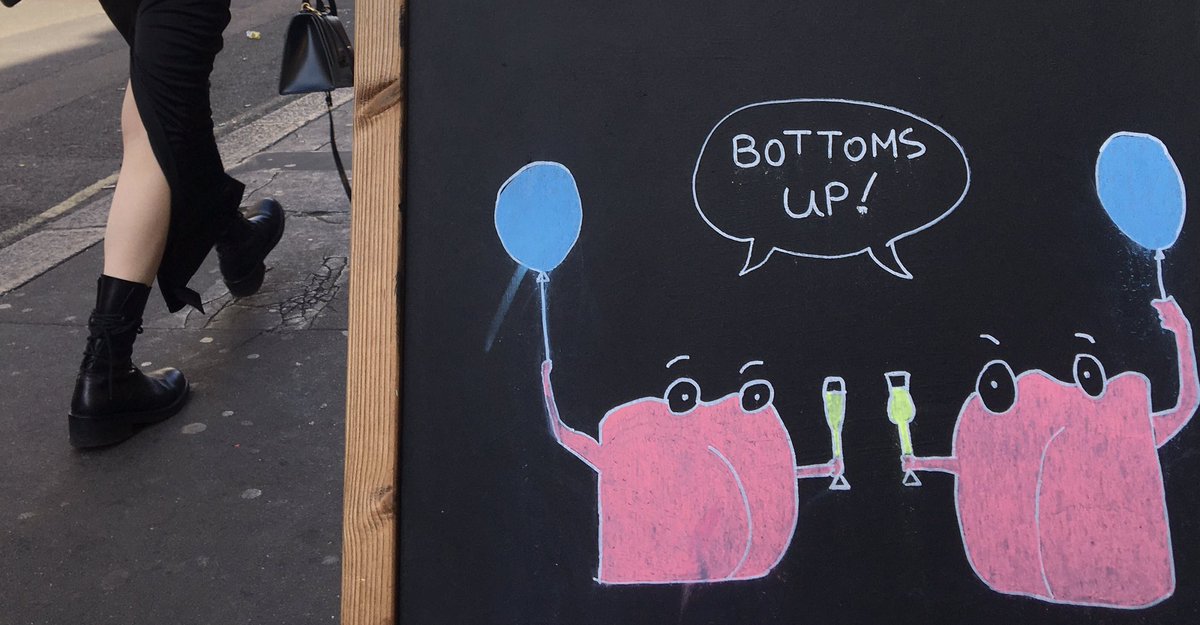 BOTTOMS
UP!